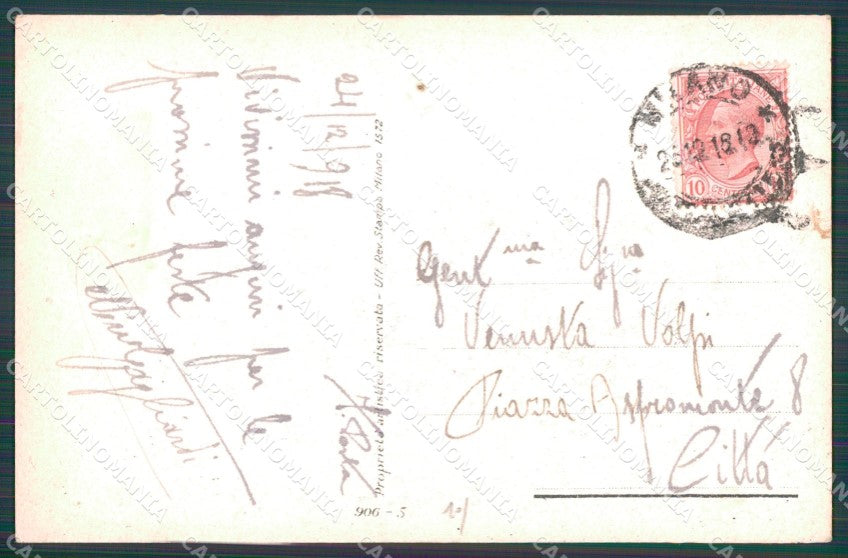 24/12/918
Vivissimi auguri per le
prossime feste
Proprietà artistica riservata - Uff. Rev. Stampa Milano 1572
906 - 5
MILANO
10 CENT
Gent.ma Sig.na
Venusta Volpi
Piazza Aspromonte 8
Città
CARTOLINOMANIA